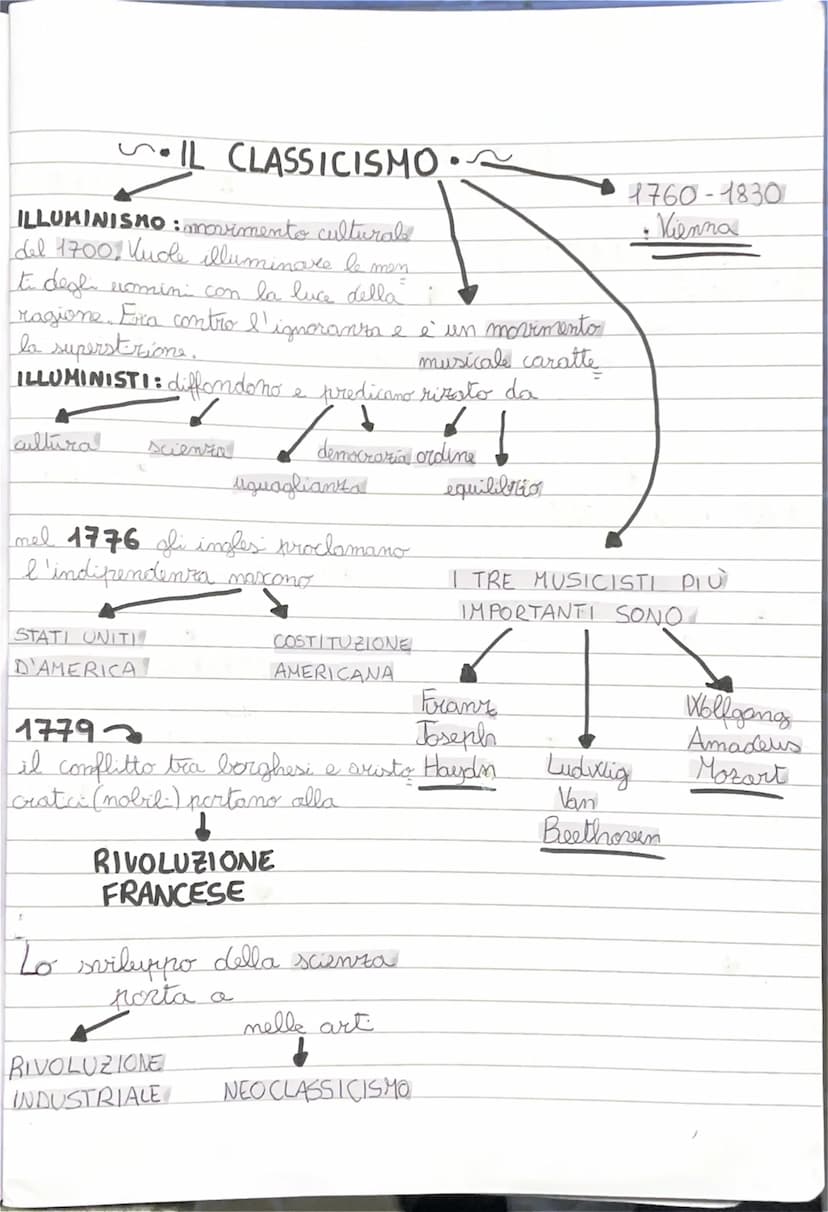 IL CLASSICISMO
1760 - 1830
• Vienna
ILLUMINISMO: movimento culturale
del 1700. Vuole illuminare le men
ti degli uomini con la luce della
ragione. Era contro l'ignoranza e
la superstizione.
è un movimento
musicale caratte
rizato da
ordine
equilibrio
ILLUMINISTI: diffondono e predicano
cultura
scienza
uguaglianza
democrazia
nel 1776 gli inglesi proclamano
l'indipendenza nascono
STATI UNITI
D'AMERICA
COSTITUZIONE
AMERICANA
I TRE MUSICISTI PIÙ
IMPORTANTI SONO
Franz
Joseph
Haydn
Ludwig
Van
Beethoven
Wolfgang
Amadeus
Mozart
1779
il conflitto tra borghesi e aristo
cratci (nobili) portano alla
RIVOLUZIONE
FRANCESE
Lo sviluppo della scienza
porta a
RIVOLUZIONE
INDUSTRIALE
nelle arti
NEOCLASSICISMO